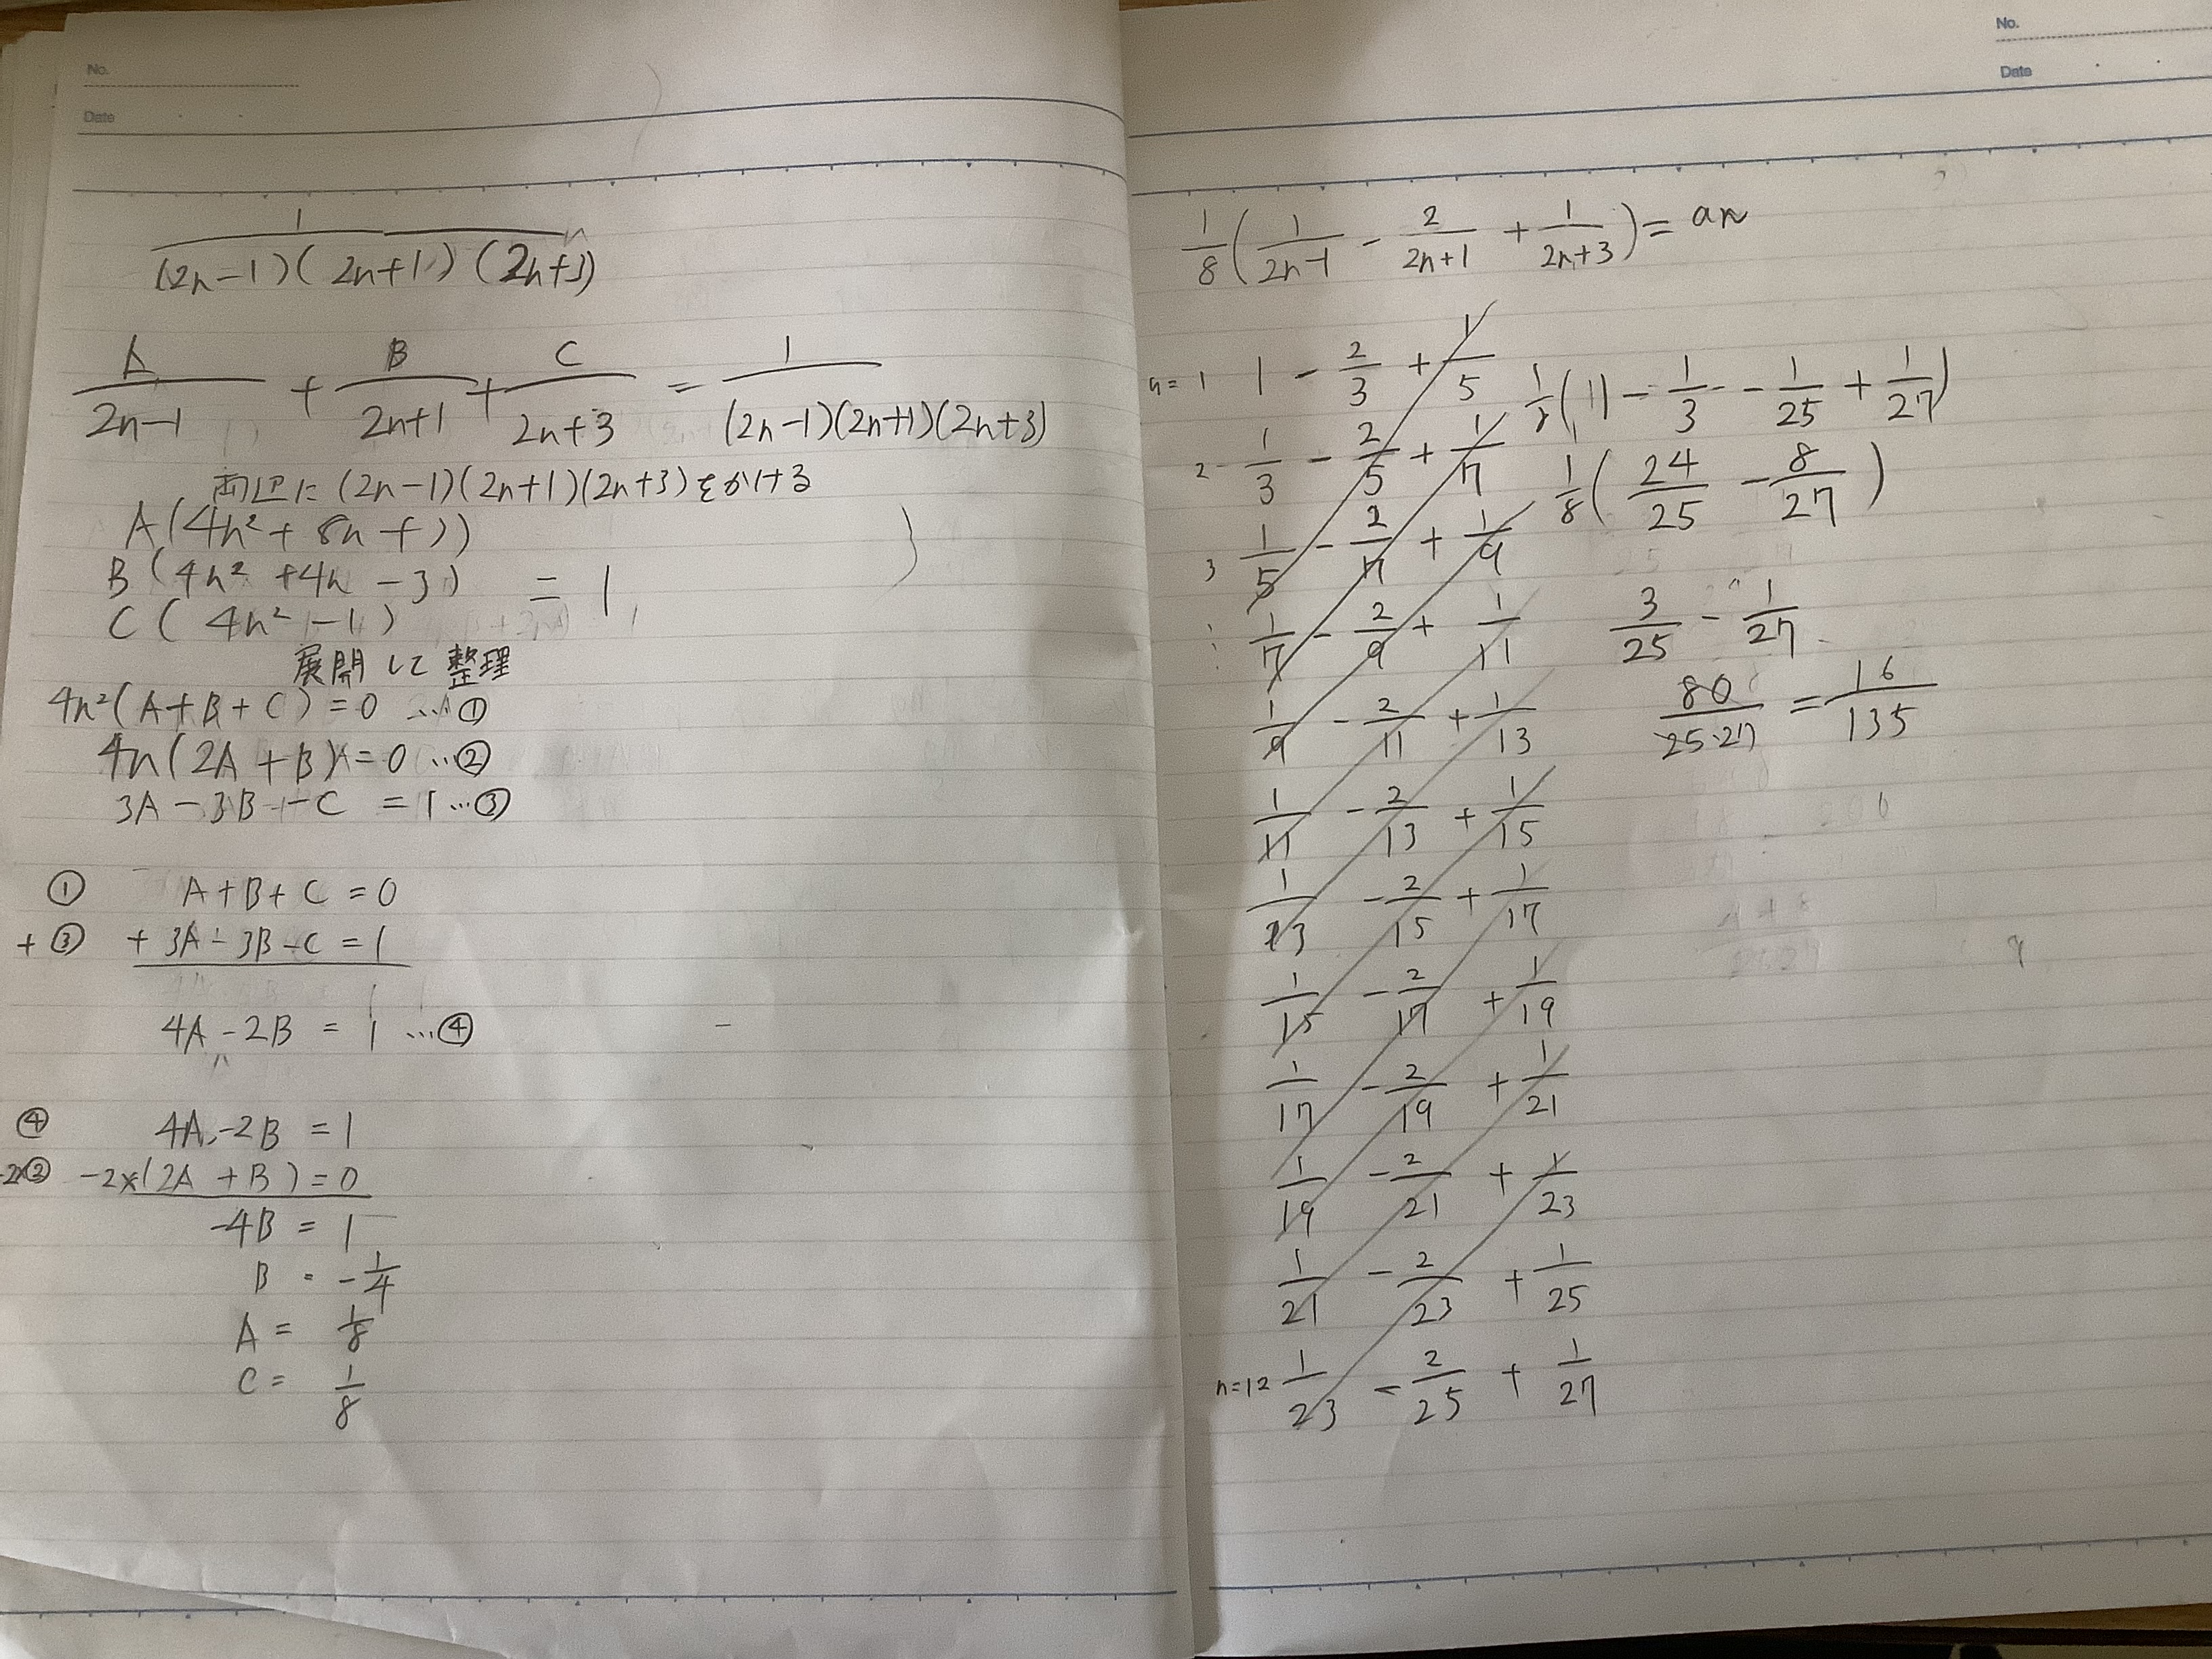 No.
Date
1/((2n-1)(2n+1)(2n+3))
A/(2n-1) + B/(2n+1) + C/(2n+3) = 1/((2n-1)(2n+1)(2n+3))
両辺に (2n-1)(2n+1)(2n+3) をかける
A(4n²+8n+3)
B(4n²+4n-3) = 1
C(4n²-1)
展開して整理
4n²(A+B+C)=0 …①
4n(2A+B)=0 …②
3A-3B-C =1…③
① A+B+C=0
+③ +3A-3B-C=1
4A-2B = 1 …④
④ 4A-2B=1
-2×② -2×(2A+B)=0
-4B = 1
B = -1/4
A = 1/8
C = 1/8
No.
Date
1/8(1/(2n-1) - 2/(2n+1) + 1/(2n+3)) = an
n=1 1 - 2/3 + 1/5
2 1/3 - 2/5 + 1/7
3 1/5 - 2/7 + 1/9
⋮ 1/7 - 2/9 + 1/11
1/9 - 2/11 + 1/13
1/11 - 2/13 + 1/15
1/13 - 2/15 + 1/17
1/15 - 2/17 + 1/19
1/17 - 2/19 + 1/21
1/19 - 2/21 + 1/23
1/21 - 2/23 + 1/25
n=12 1/23 - 2/25 + 1/27
1/8(1) - 1/3 - 1/25 + 1/27)
1/8(24/25 - 8/27)
3/25 - 1/27
80/25·27 = 16/135